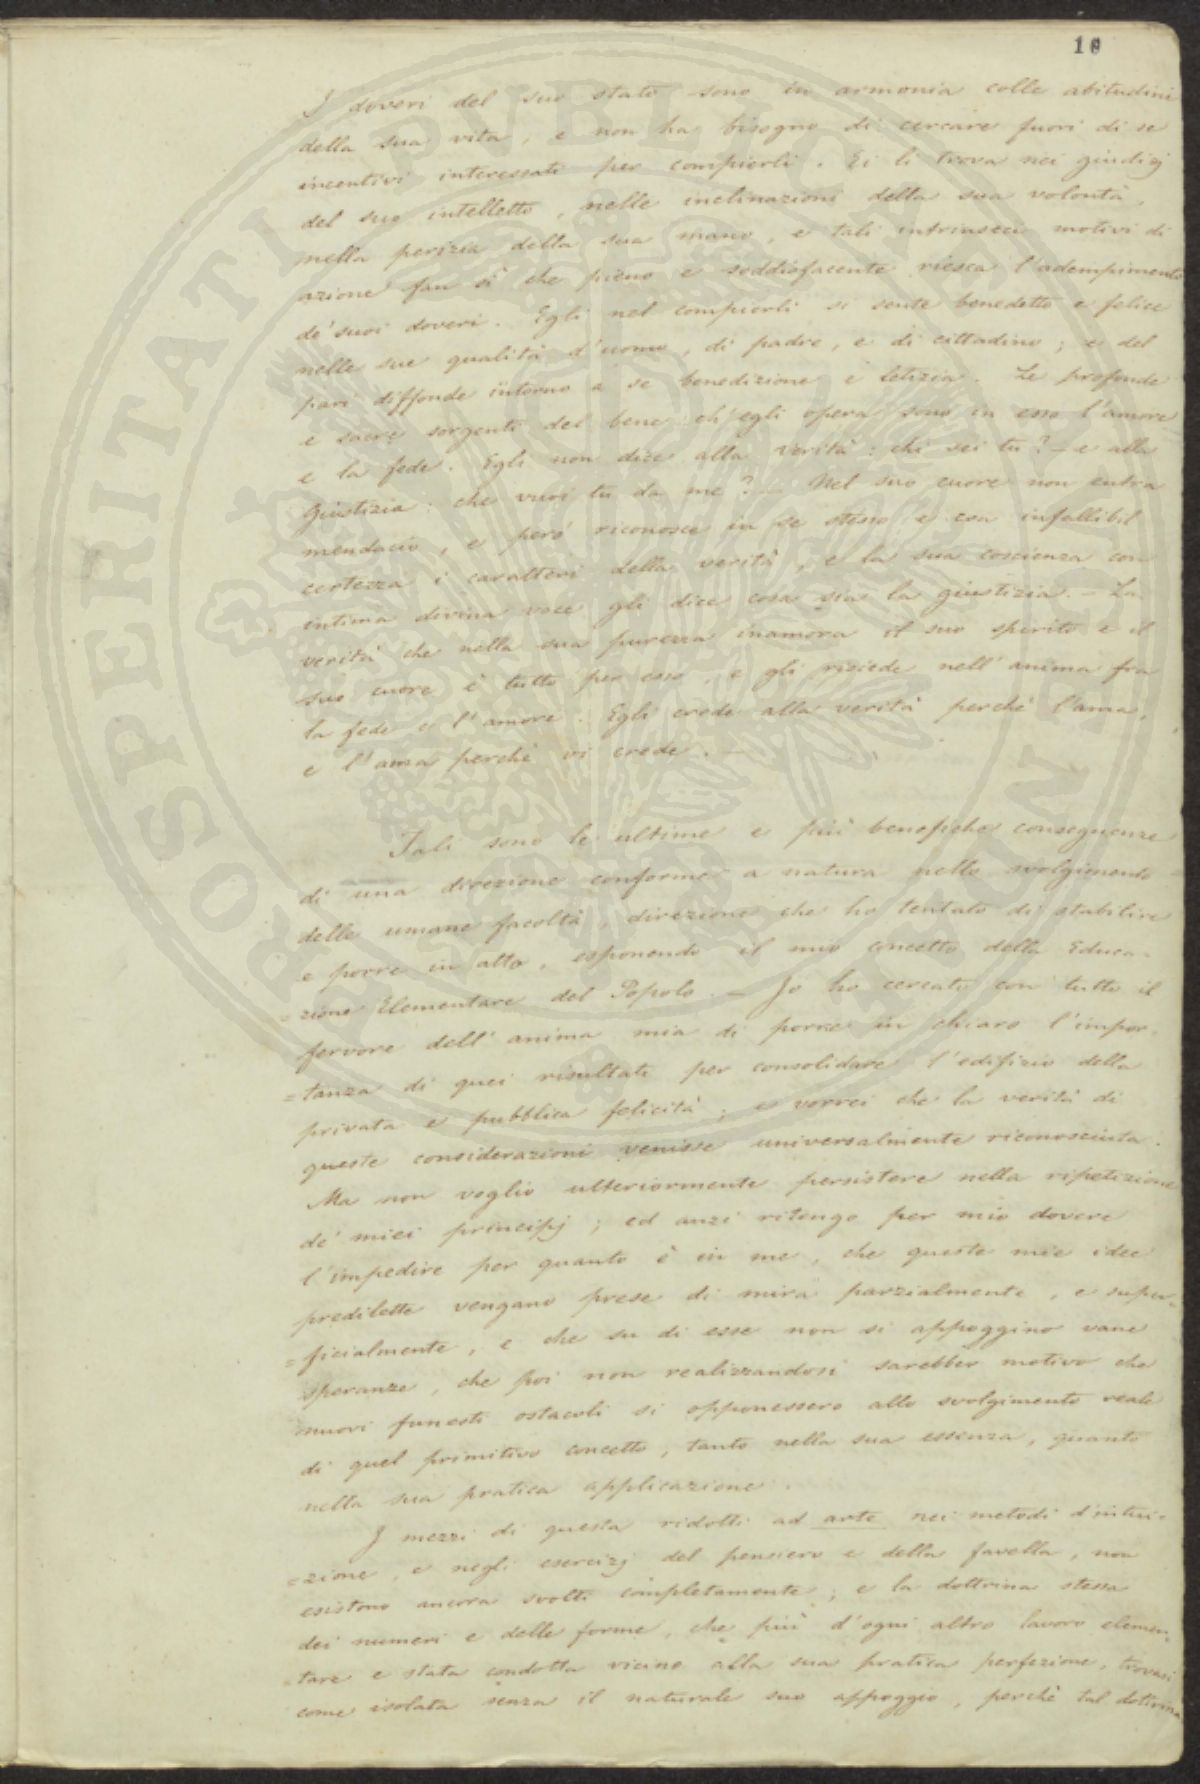 10
I doveri del suo stato sono in armonia colle abitudini
della sua vita, e non ha bisogno di cercare fuori di se
incentivi interessati per compierli. Ei li trova nei giudizj
del suo intelletto, nelle inclinazioni della sua volontà,
nella perizia della sua mano, e tali intrinseci motivi di
azione fan sì che pieno e soddisfacente riesca l'adempimento
de' suoi doveri. Egli nel compierli si sente benedetto e felice
nelle sue qualità d'uomo, di padre, e di cittadino; e del
pari diffonde intorno a se benedizione e letizia. Le profonde
e sacre sorgenti del bene ch'egli opera sono in esso l'amore
e la fede. Egli non dice alla verità: chi sei tu? - e alla
Giustizia: che vuoi tu da me? - Nel suo cuore non entra
mendacio, e però riconosce in se stesso e con infallibil
certezza i caratteri della verità, e la sua coscienza con
intima divina voce gli dice cosa sia la giustizia. - La
verità che nella sua purezza inamora il suo spirito e il
suo cuore è tutto per esso, e gli risiede nell'anima fra
la fede e l'amore. Egli crede alla verità perchè l'ama,
e l'ama perchè vi crede. -
Tali sono le ultime e più benefiche conseguenze
di una direzione conforme a natura nello svolgimento
delle umane facoltà, direzione che ho tentato di stabilire
e porre in alto, esponendo il mio concetto della Educa-
=zione Elementare del Popolo. - Io ho cercato con tutto il
fervore dell'anima mia di porre in chiaro l'impor-
=tanza di quei risultati per consolidare l'edifizio della
privata e pubblica felicità; e vorrei che la verità di
queste considerazioni venisse universalmente riconosciuta.
Ma non voglio ulteriormente persistere nella ripetizione
de' miei principj; ed anzi ritengo per mio dovere
l'impedire per quanto è in me, che queste mie idee
predilette vengano prese di mira parzialmente, e super-
=ficialmente, e che su di esse non si appoggino vane
speranze, che poi non realizzandosi sarebber motivo che
nuovi funesti ostacoli si opponessero allo svolgimento reale
di quel primitivo concetto, tanto nella sua essenza, quanto
nella sua pratica applicazione.
I mezzi di questa ridotti ad arte nei metodi d'intui-
=zione, e negli esercizj del pensiero e della favella, non
esistono ancora svolti completamente; e la dottrina stessa
dei numeri e delle forme, che più d'ogni altro lavoro elemen-
=tare e stata condotta vicino alla sua pratica perfezione, trovasi
come isolata senza il naturale suo appoggio, perchè tal dottrina
PROSPERITATI PVBLICAE